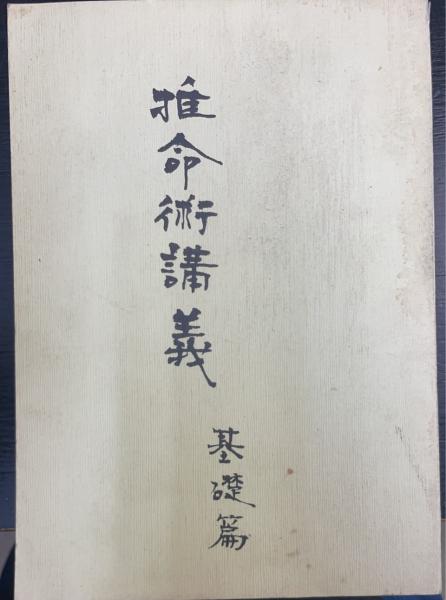 推命術講義
基礎篇